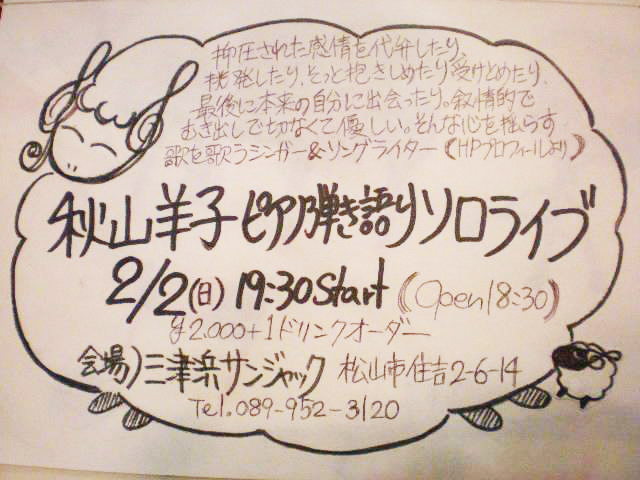 抑圧された感情を代弁したり、
挑発したり、そっと抱きしめたり受けとめたり、
最後に本来の自分に出会ったり。叙情的で
むき出しで切なくて優しい。そんな心を揺らす
歌を歌うシンガー&ソングライター《HPプロフィールより》
秋山羊子ピアノ弾き語りソロライブ
2/2(日) 19:30 Start 《Open 18:30》
¥2.000+1ドリンクオーダー
会場)三津浜サンジャック 松山市住吉2-6-14
Tel.089-952-3120